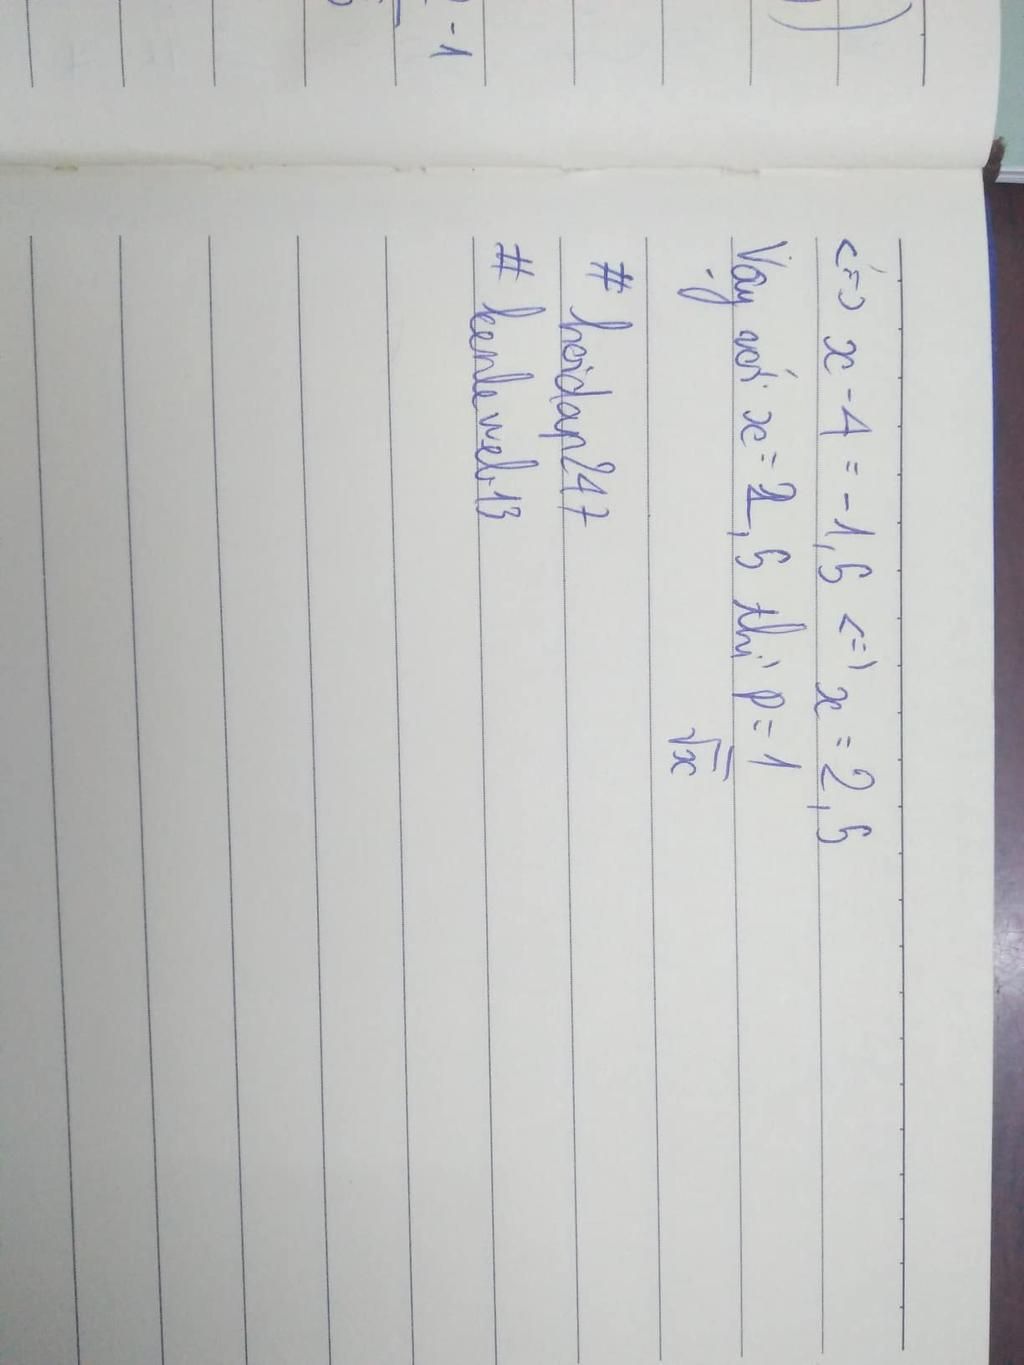 <=> x - 4 = -1,5 <=> x = 2,5
Vậy với x = 2,5 thì P = 1
√x
# hoidap247
# kenleweb13
- 1